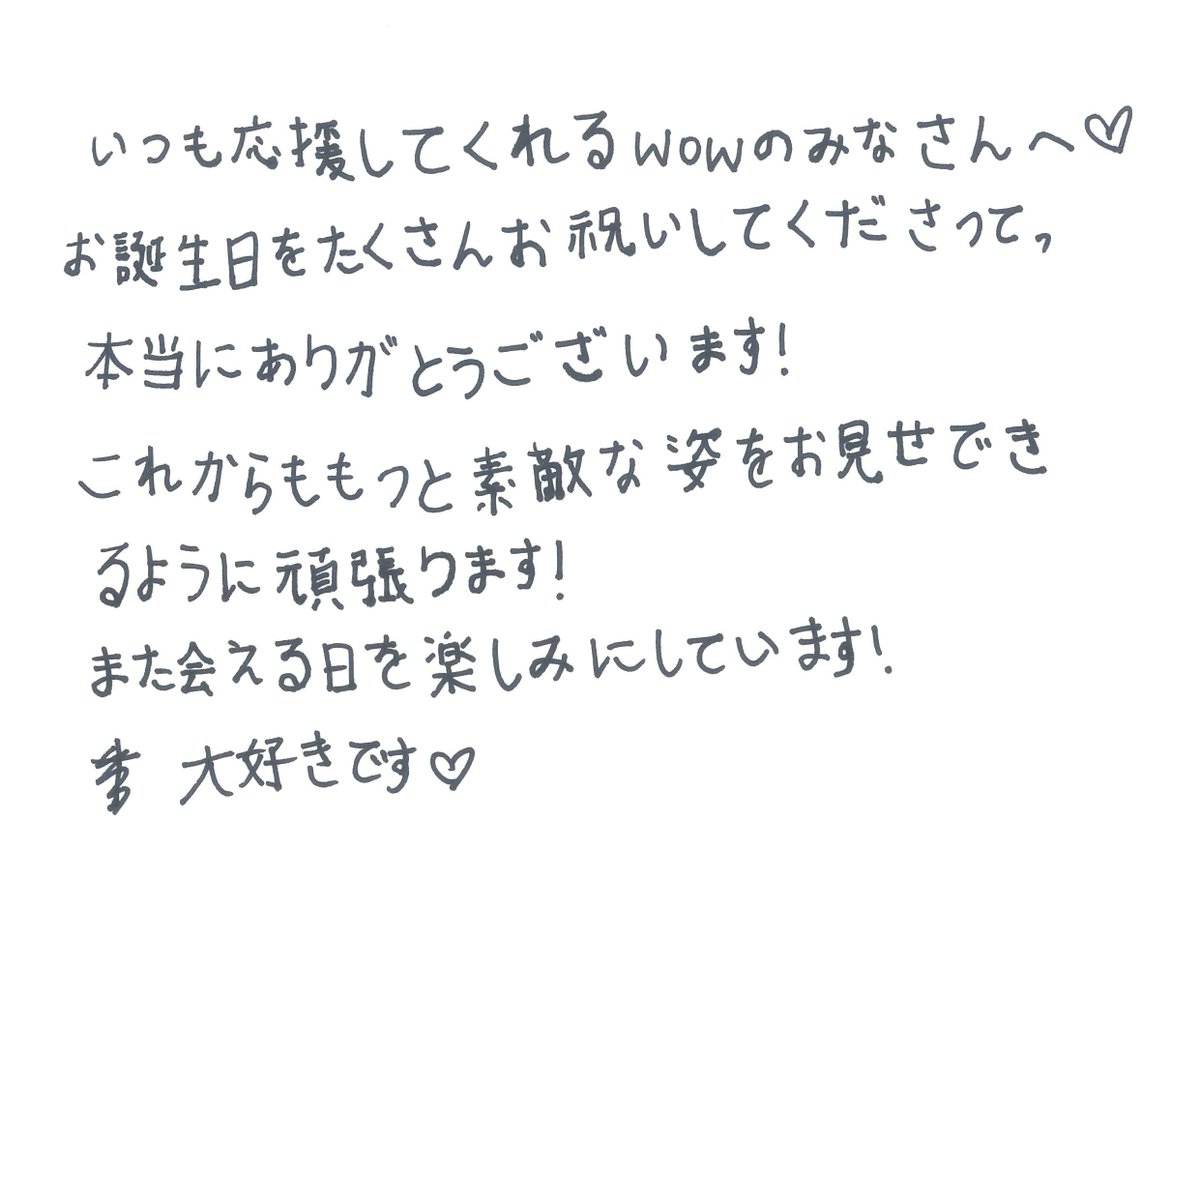 いつも応援してくれるwowのみなさんへ♡
お誕生日をたくさんお祝いしてくださって、
本当にありがとうございます!
これからももっと素敵な姿をお見せでき
るように頑張ります!
また会える日を楽しみにしています!
大好きです♡